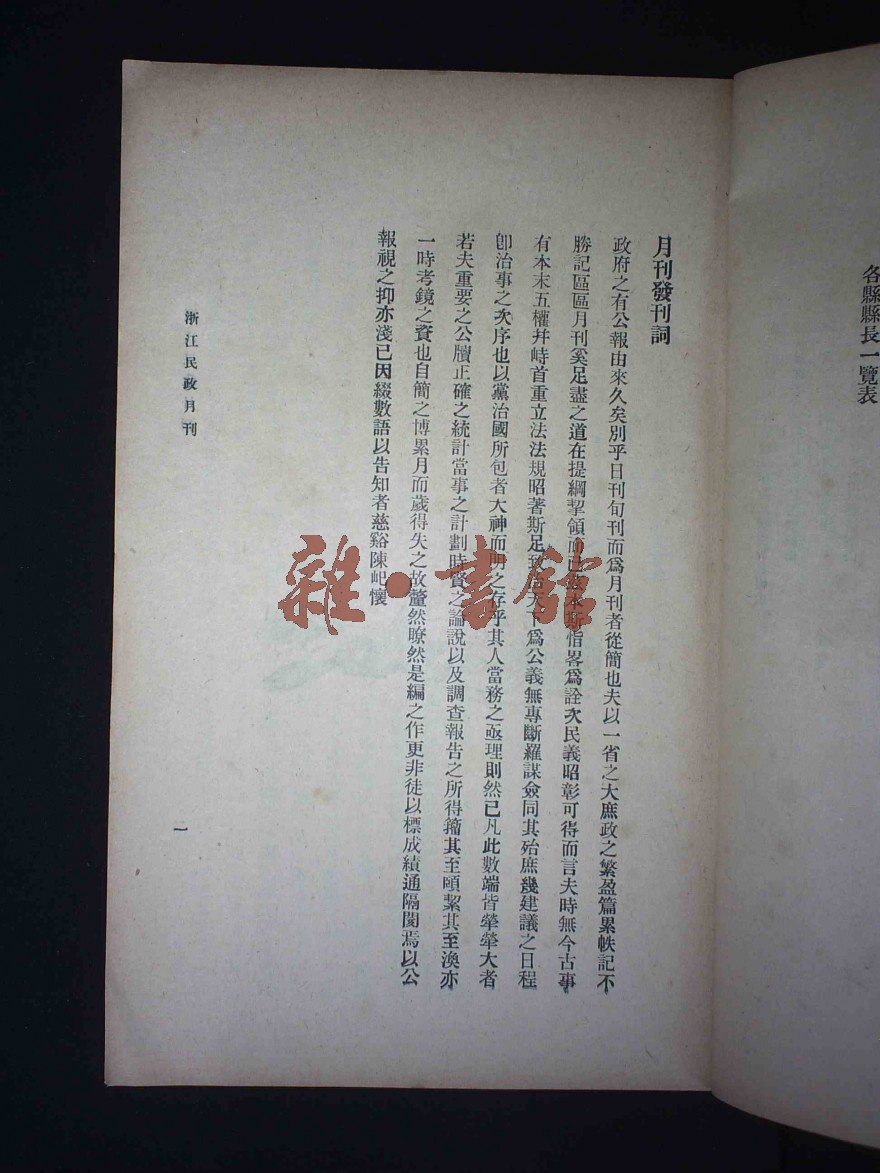 各縣縣長一覽表
月刊發刊詞
政府之有公報由來久矣別乎日刊旬刊而爲月刊者從簡也夫以一省之大庶政之繁盈篇累帙記不
勝記區區月刊奚足盡之道在提綱挈領而已茲本斯恉畧爲詮次民義昭彰可得而言夫時無今古事
有本末五權幷峙首重立法法規昭著斯足致信天下爲公義無專斷羅謀僉同其殆庶幾建議之日程
卽治事之次序也以黨治國所包者大神而明之存乎其人當務之亟理則然已凡此數端皆犖犖大者
若夫重要之公牘正確之統計當事之計劃時賢之論說以及調查報告之所得籀其至頤絜其至渙亦
一時考鏡之資也自簡之博累月而歲得失之故釐然瞭然是編之作更非徒以標成績通隔閡焉以公
報視之抑亦淺已因綴數語以告知者慈谿陳屺懷
浙江民政月刊
一
雜·書館